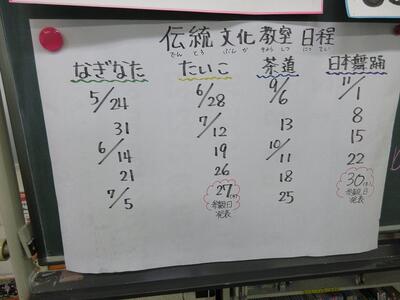 伝統文化教室日程
でんとうぶんかきょうしつにってい
なぎなた
5/24
31
6/14
21
7/5
たいこ
6/28
7/12
19
26
27(水)
参観日
発表
茶道
9/6
13
10/11
18
25
日本舞踊
11/1
8
15
22
30(水)
参観日
発表